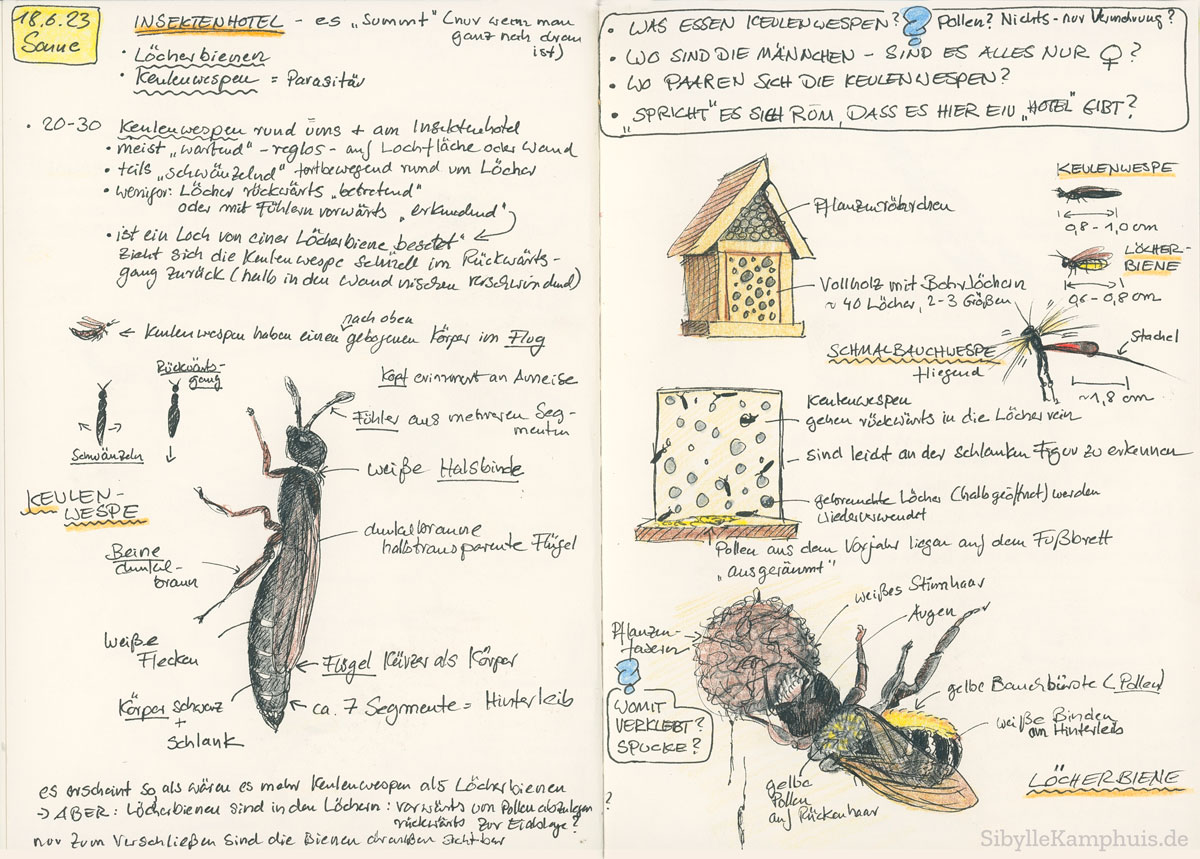 18.6.23
Sonne
INSEKTENHOTEL – es „summt" (nur wenn man
ganz nah dran
ist)
• Löcherbienen
• Keulenwespen = Parasitär
• 20-30 Keulenwespen rund ums + am Insektenhotel
• meist „wartend" - reglos - auf Lochfläche oder Wand
• teils „schwänzelnd" fortbewegend rund um Löcher
• weniger: Löcher rückwärts „betretend"
oder mit Fühlern vorwärts „erkundend"
• ist ein Loch von einer Löcherbiene „besetzt"
zieht sich die Keulenwespe schnell im Rückwärts-
gang zurück (halb in den Wand verschwindend)
← Keulenwespen haben einen nach oben gebogenen Körper im Flug
Rückwärts-
gang
Schwänzeln
Kopf erinnert an Ameise
Fühler aus mehreren Seg-
menten
weiße Halsbinde
KEULEN-
WESPE
dunkelbraune
halbtransparente Flügel
Beine
dunkel-
braun
weiße
Flecken
Flügel kürzer als Körper
Körper schwarz
+
schlank
ca. 7 Segmente = Hinterleib
es erscheint so als wären es mehr Keulenwespen als Löcherbienen
→ ABER: Löcherbienen sind in den Löchern: vorwärts um Pollen abzulegen
rückwärts zur Eiablage?
nur zum Verschließen sind die Bienen draußen sichtbar
• WAS ESSEN KEULENWESPEN? ? Pollen? Nichts - nur Vermehrung?
• WO SIND DIE MÄNNCHEN – SIND ES ALLES NUR ♀?
• WO PAAREN SICH DIE KEULENWESPEN?
• „SPRICHT" ES SICH RUM, DASS ES HIER EIN „HOTEL" GIBT?
Pflanzenröhrchen
KEULENWESPE
0,8 - 1,0 cm
LÖCHER-
BIENE
0,6 - 0,8 cm
Vollholz mit Bohrlöchern
~ 40 Löcher, 2-3 Größen
SCHMALBAUCHWESPE
fliegend
Stachel
~1,8 cm
Keulenwespen
gehen rückwärts in die Löcher rein
sind leicht an der schlanken Figur zu erkennen
gebrauchte Löcher (halbgeöffnet) werden
wiederverwendet
Pollen aus dem Vorjahr liegen auf dem Fußbrett
„ausgeräumt"
weißes Stirnhaar
Augen
Pflanzen-
fasern
?
WOMIT
VERKLEBT?
SPUCKE?
gelbe Bauchbürste (Pollen)
weiße Binden
am Hinterleib
gelbe
Pollen
auf Rückenhaar
LÖCHERBIENE
?
SibylleKamphuis.de